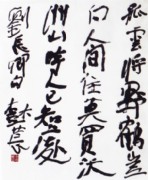 孤雲將野鶴豈
向人間住莫買沃
洲山時人已知處
劉長卿